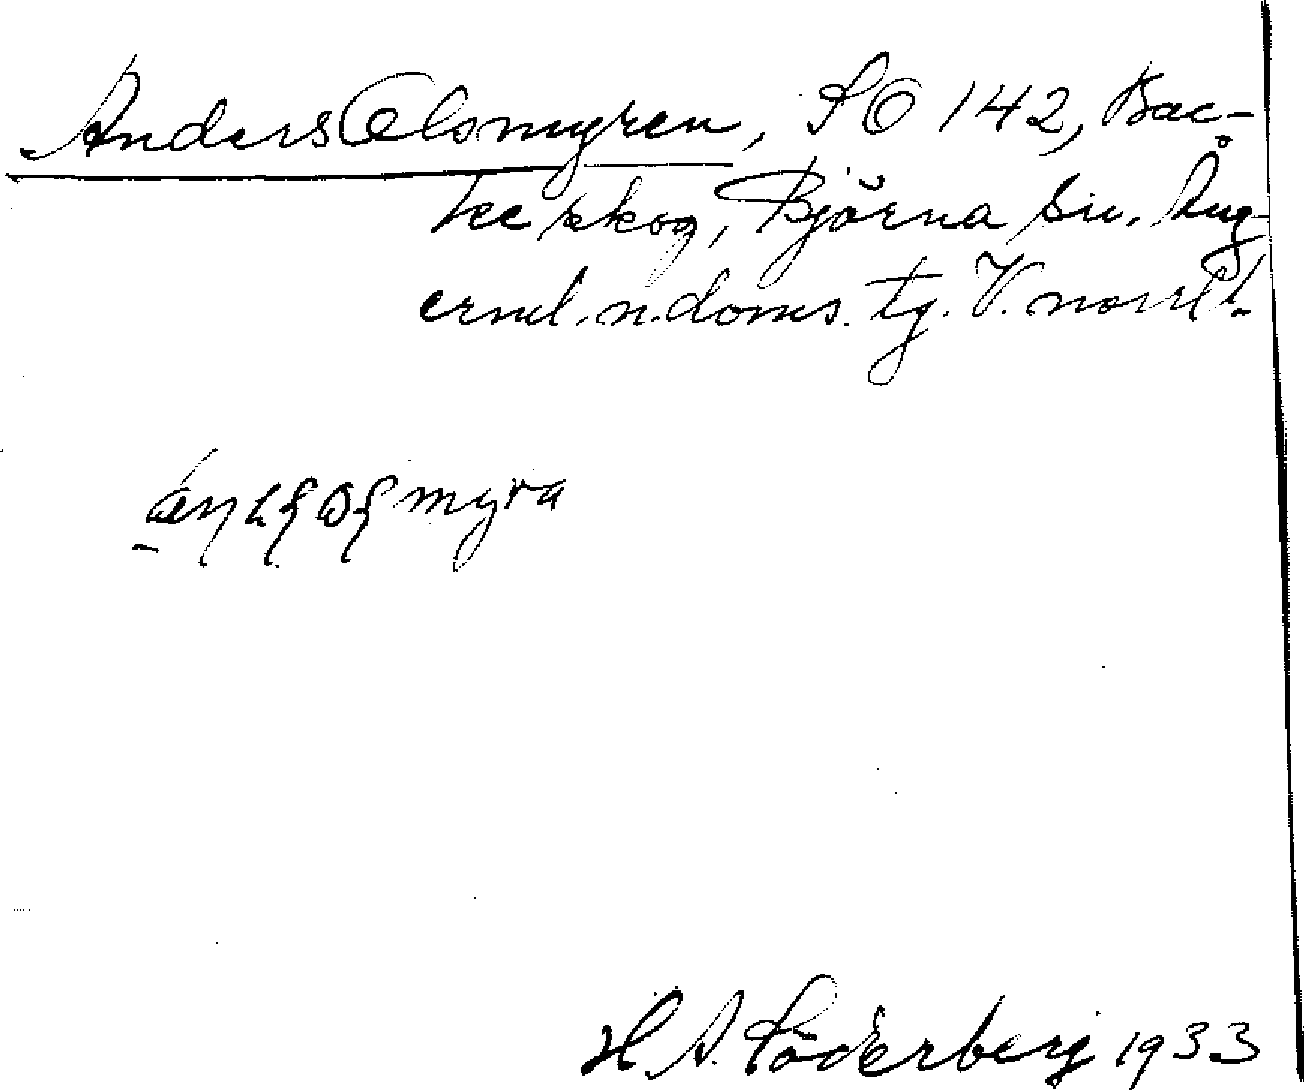 Anders Olsmyren, SO 142, Bac-
ke skog, Björna sn. Ång-
erml. n. doms. tg. V. norrl.
myra
H. A. Söderberg 1933